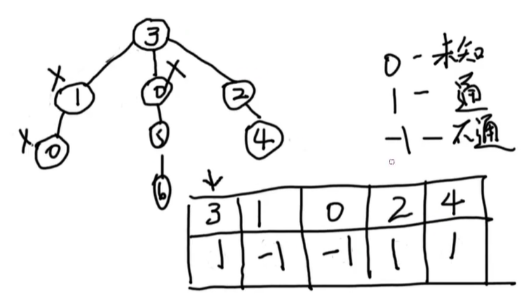 3
X 1 0 X 2
X 0 5 4
6
0 - 未知
1 - 通
-1 - 不通
3 1 0 2 4
1 -1 -1 1 1